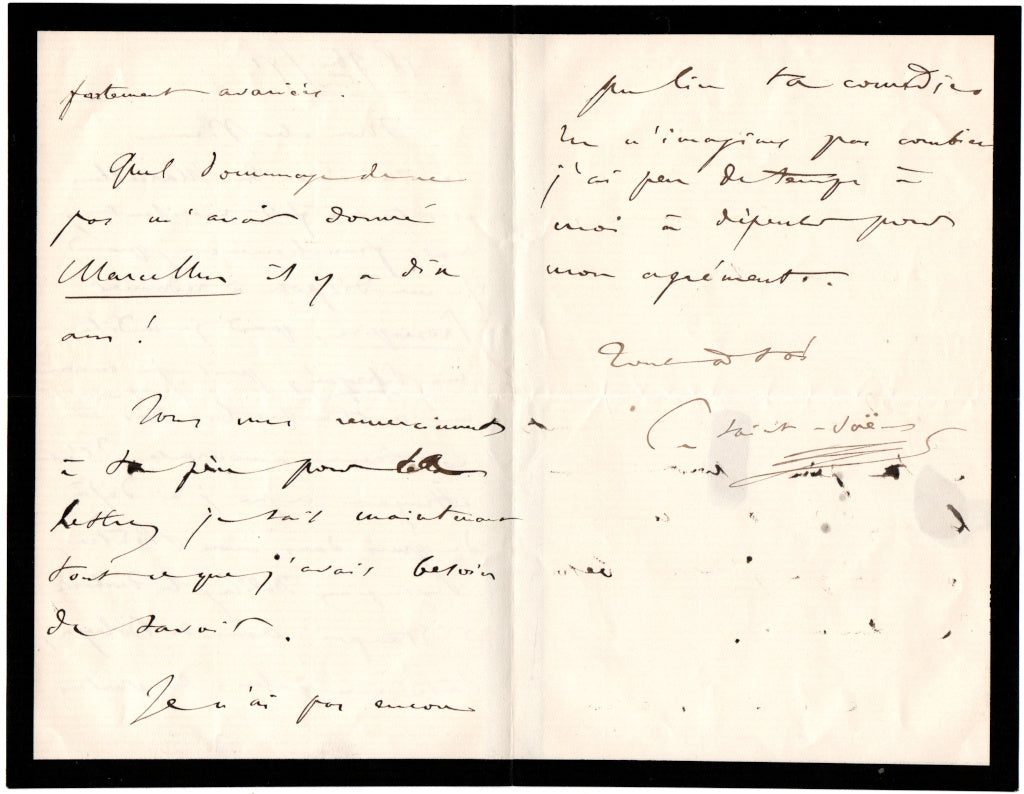 fortement avariés.
Quel dommage de ne
pas m'avoir donné
Marcellus il y a dix
ans!
Tous mes remerciements
à ton père pour
lettre, je sais maintenant
tout ce que j'avais besoin
de savoir.
Je n'ai pas encore
pu lire ta comédie.
Tu n'imagines pas combien
j'ai peu de temps à
moi à dépenser pour
mon agrément.
Tout à toi
C. Saint-Saëns